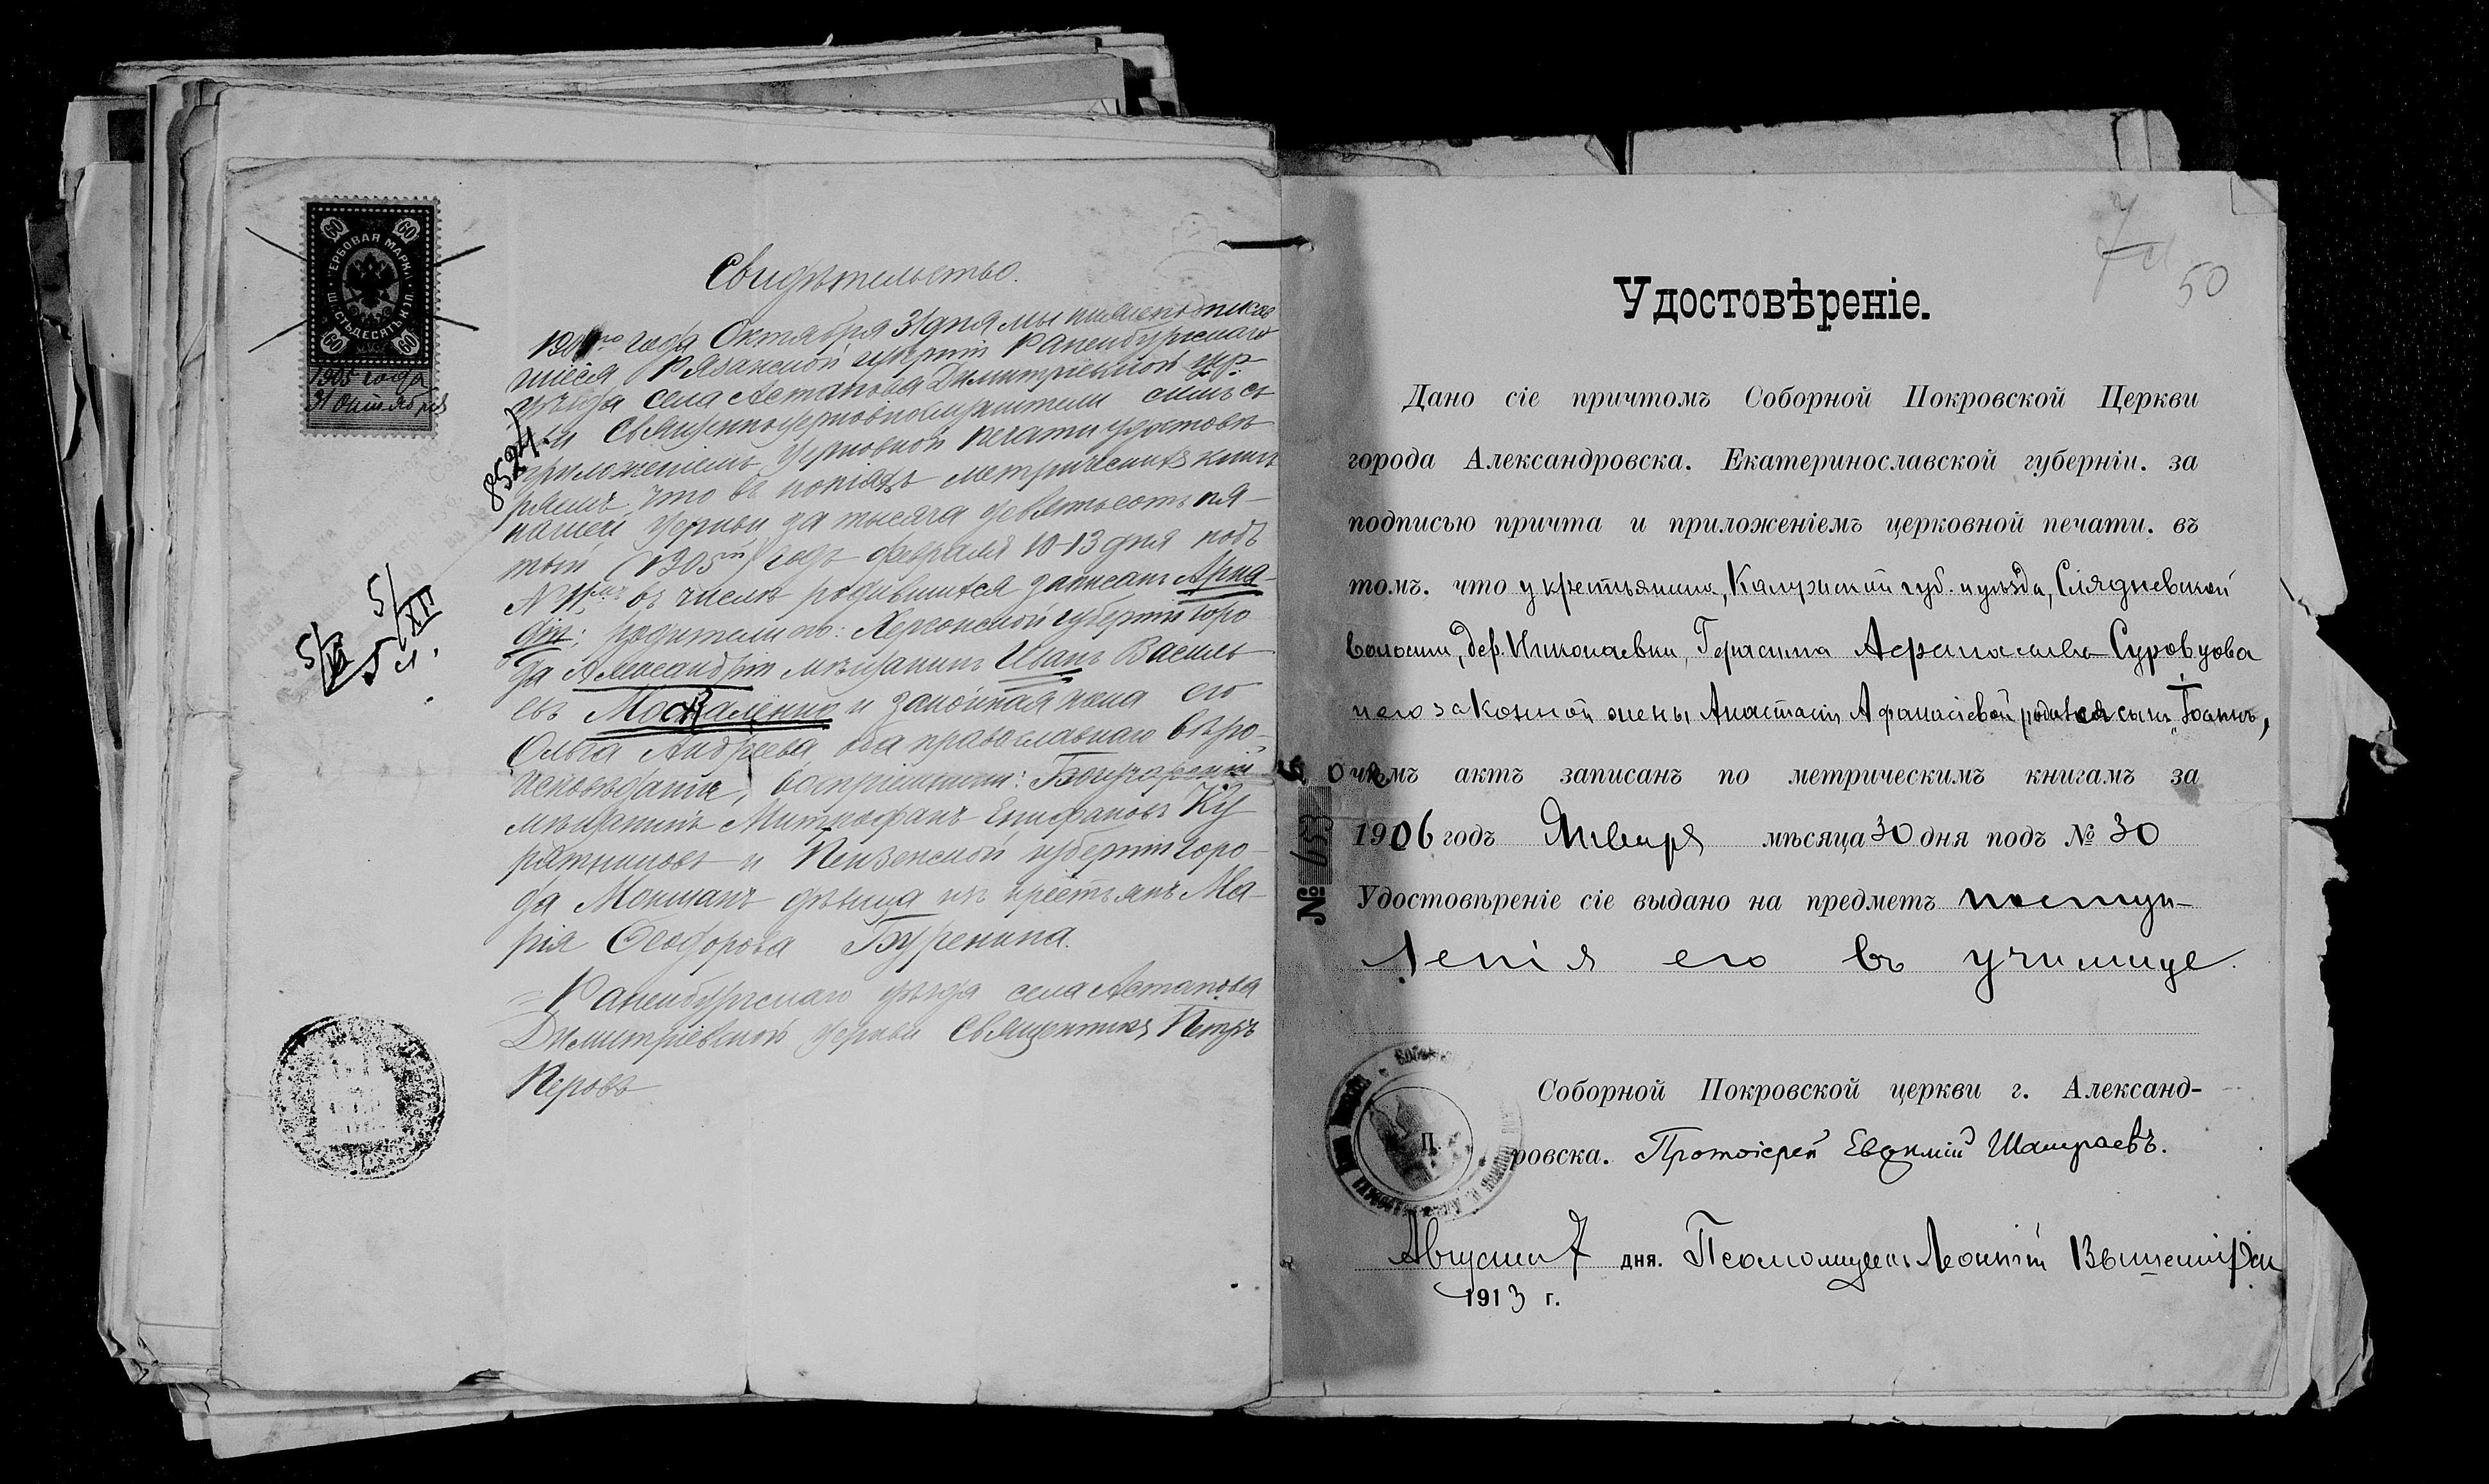 ГЕРБОВАЯ МАРКА
ШЕСТЬДЕСЯТЪ К
60 60
60 60
1905 года
31 Октября
8524
5/XII
5/XII
Свидѣтельство.
года Октября 31 дня мы нижеподписав
шіеся Рязанской губерніи Раненбургскаго
уѣзда села Астапова Димитріевской цер-
кви Священноцерковнослужители симъ съ
приложеніемъ церковной печати удостовѣ
ряемъ, что въ копіяхъ метрическихъ книгъ
нашей церкви за тысяча девятьсотъ пя-
тый (1905ый) годъ февраля 10-13 дня подъ
N 11 въ числѣ родившихся записанъ Арка-
дій; родители его: Херсонской губерніи горо
да Александріи мѣщанинъ Иванъ Василь
евъ Москаленко и законная жена его
Ольга Андреева, оба православнаго вѣро-
исповѣданія, воспріемники:
мѣщанинъ Митрофанъ Епифановъ Ку
ратниковъ и Пензенской губерніи горо-
да Мокшанъ дѣвица изъ крестьянъ Ма-
рія Ѳеодорова Буренина.
Раненбургскаго уѣзда села Астапова
Димитріевской церкви Священникъ Петръ
Перовъ
50
Удостовѣреніе.
Дано сіе причтомъ Соборной Покровской Церкви
города Александровска. Екатеринославской губерніи. за
подписью причта и приложеніемъ церковной печати. въ
томъ. что у крестьянина, Калужской губ. и уѣзда,
волости, дер. Николаевки, Герасима Суровцова
и его законной жены Анастасіи Афанасіевой родился сынъ "Іоаннъ",
о чемъ актъ записанъ по метрическимъ книгамъ за
1906 годъ Января мѣсяца 30 дня подъ № 30
Удостовѣреніе сіе выдано на предметъ поступ-
ленія его въ училище.
№ 653
Соборной Покровской церкви г. Александ-
ровска. Протоіерей Евѳимій
П.
Августа 7 дня. Псаломщикъ Леонтій
1913 г.